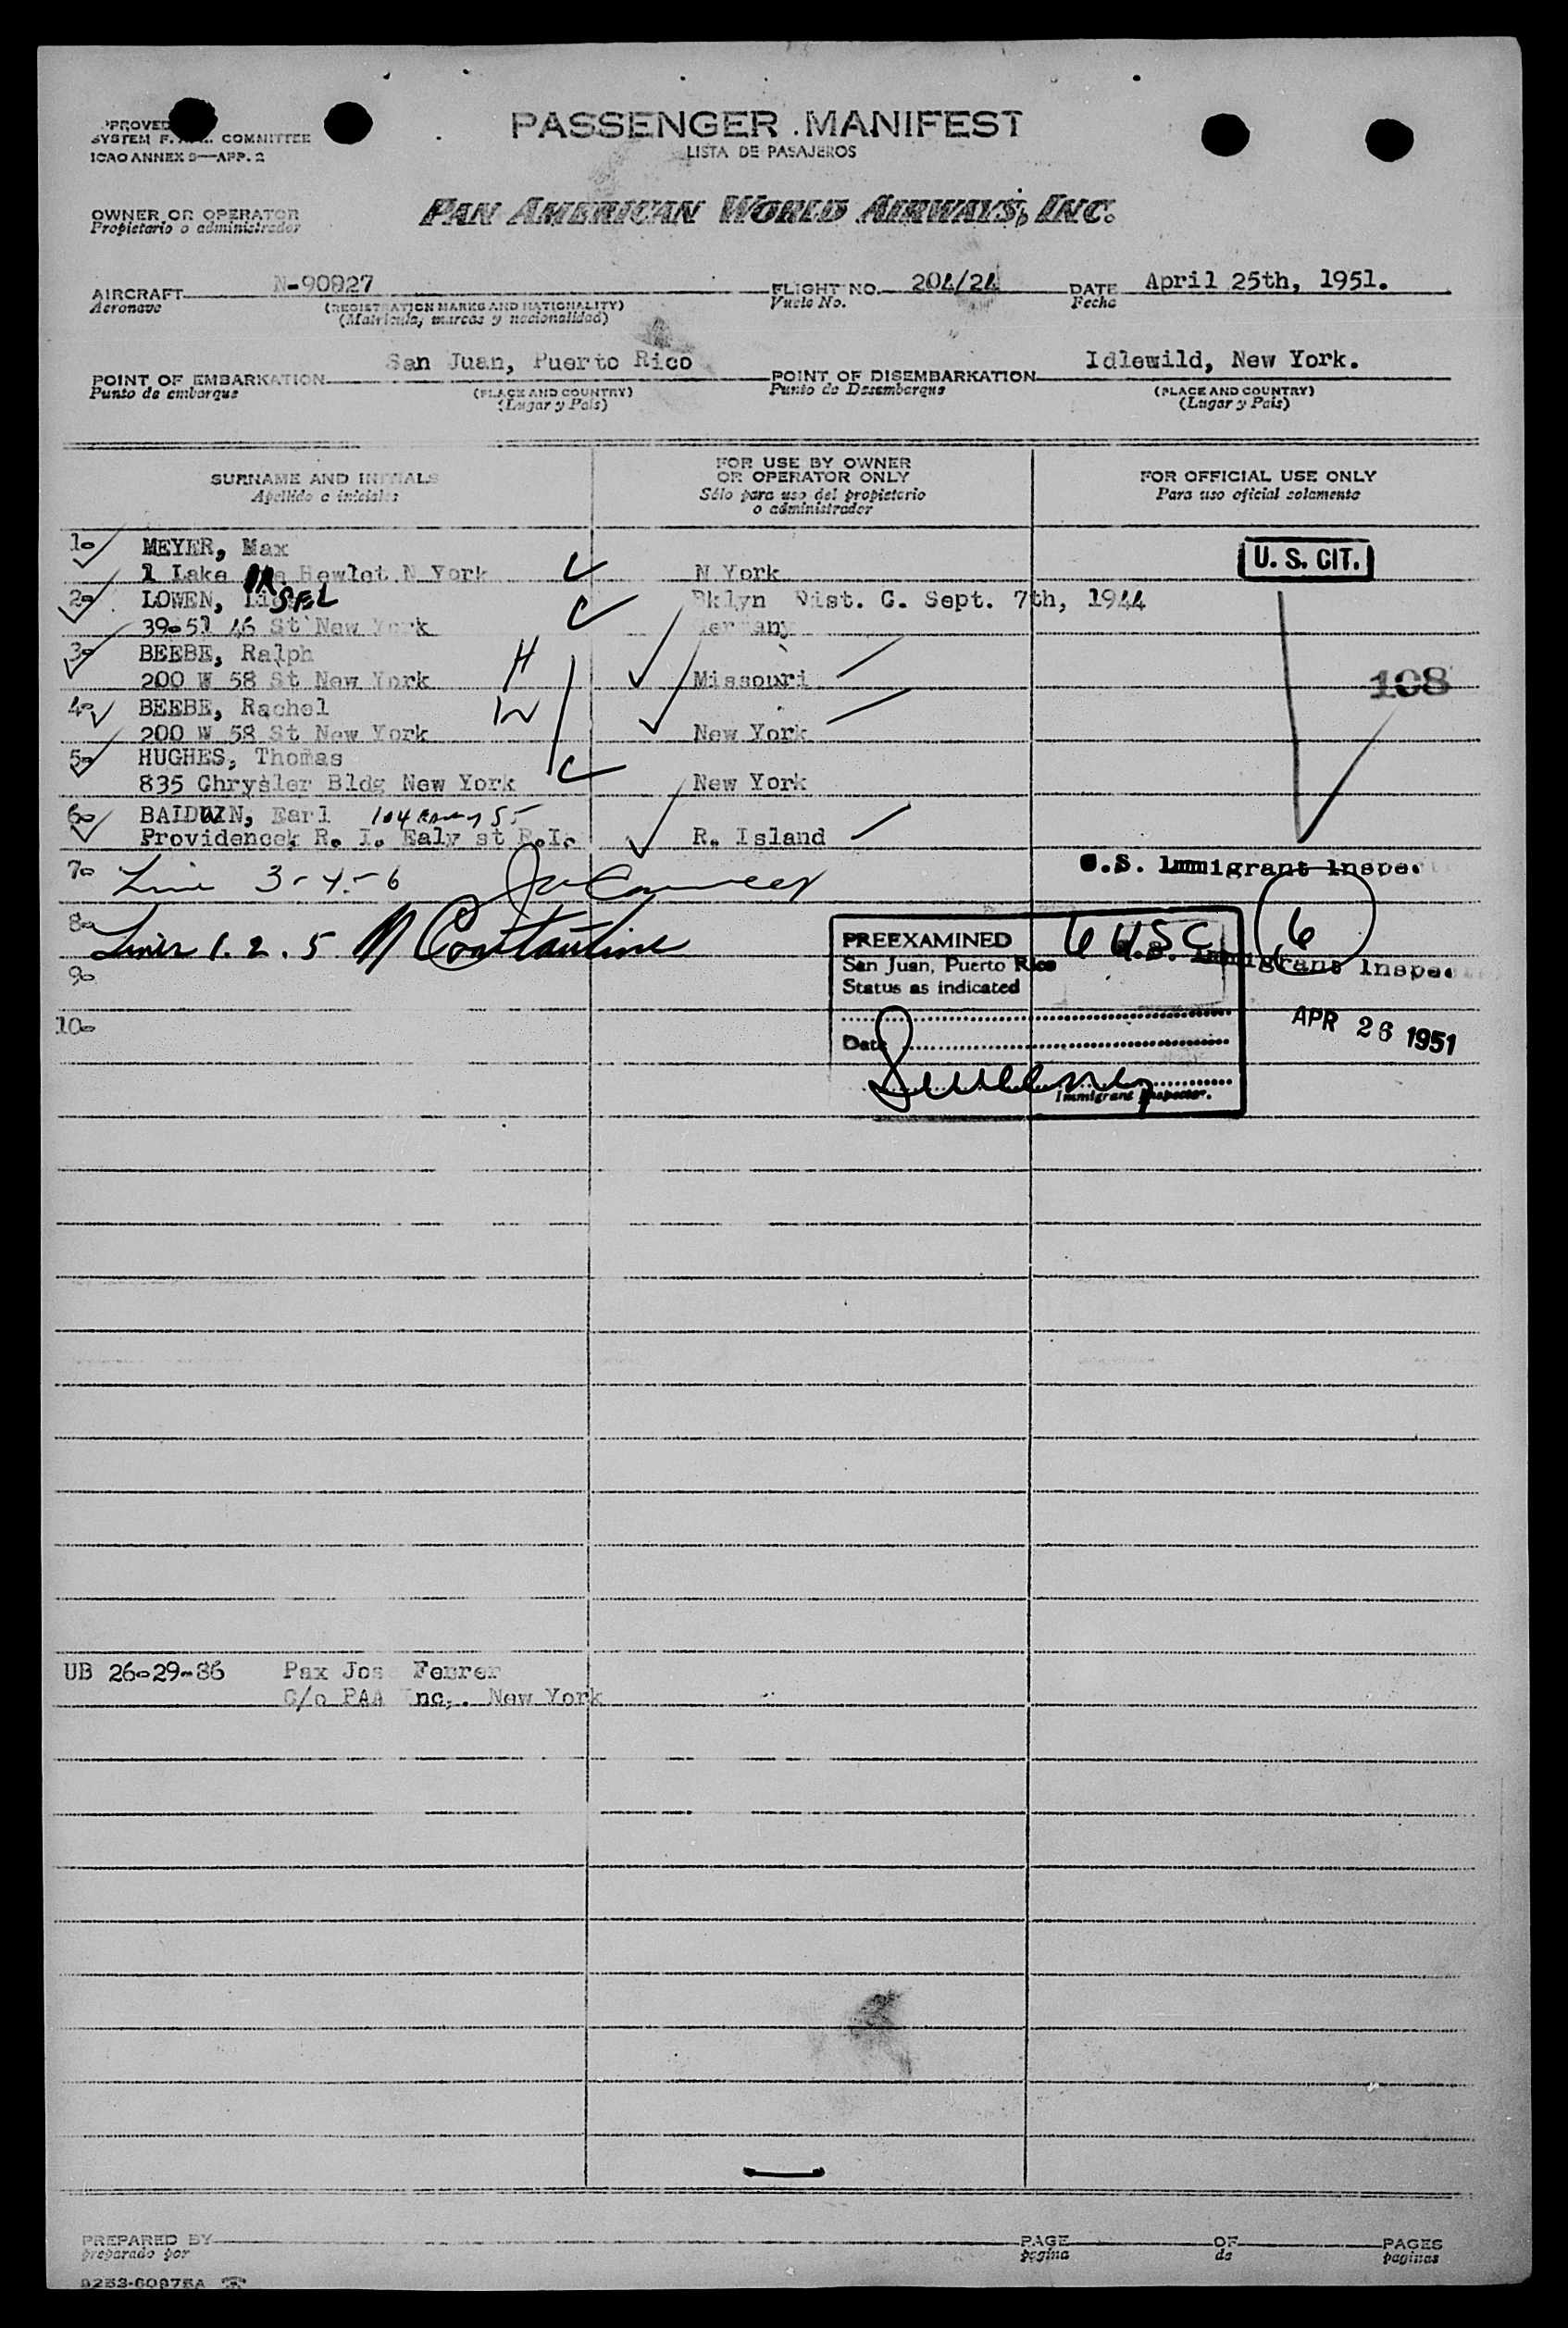 PASSENGER MANIFEST
LISTA DE PASAJEROS
SYSTEM COMMITTEE
ICAO ANNEX 9—APP. 2
OWNER OR OPERATOR
Propietario o administrador
PAN AMERICAN WORLD AIRWAYS, INC.
AIRCRAFT N-90827 FLIGHT NO. 204/24 DATE April 25th, 1951.
Aeronave (REGISTRATION MARKS AND NATIONALITY) Vuelo No. Fecha
(Matricula, marcas y nacionalidad)
POINT OF EMBARKATION San Juan, Puerto Rico POINT OF DISEMBARKATION Idlewild, New York.
Punto de embarque (PLACE AND COUNTRY) Punto de Desembarque (PLACE AND COUNTRY)
(Lugar y País) (Lugar y País)
SURNAME AND INITIALS
Apellido e iniciales
FOR USE BY OWNER
OR OPERATOR ONLY
Sólo para uso del propietario
o administrador
FOR OFFICIAL USE ONLY
Para uso oficial solamente
1- MEYER, Max
1 Lake Hewlet N York C N York
U. S. CIT.
2- LOWEN, SEL C Bklyn Dist. C. Sept. 7th, 1944
39-51 46 St New York Germany
3- BEEBE, Ralph H
200 W 58 St New York Missouri
108
4- BEEBE, Rachel W
200 W 58 St New York New York
5- HUGHES, Thomas C
835 Chrysler Bldg New York New York
6- BALDWIN, Earl 104
Providence, R. I. Ealy st R.I. R. Island
7- Line 3-4-6
U.S. Immigrant Inspec
8- Lines 1. 2. 5 N Constantine
9-
10-
PREEXAMINED 6 U.S.C. 6
San Juan, Puerto Rico U.S. Immigrant Inspec
Status as indicated
APR 26 1951
Date
Immigrant Inspector.
UB 26-29-86 Pax Jose Ferrer
C/o PAA Inc,. New York
PREPARED BY PAGE OF PAGES
preparado por pagina de paginas
9253-60975A